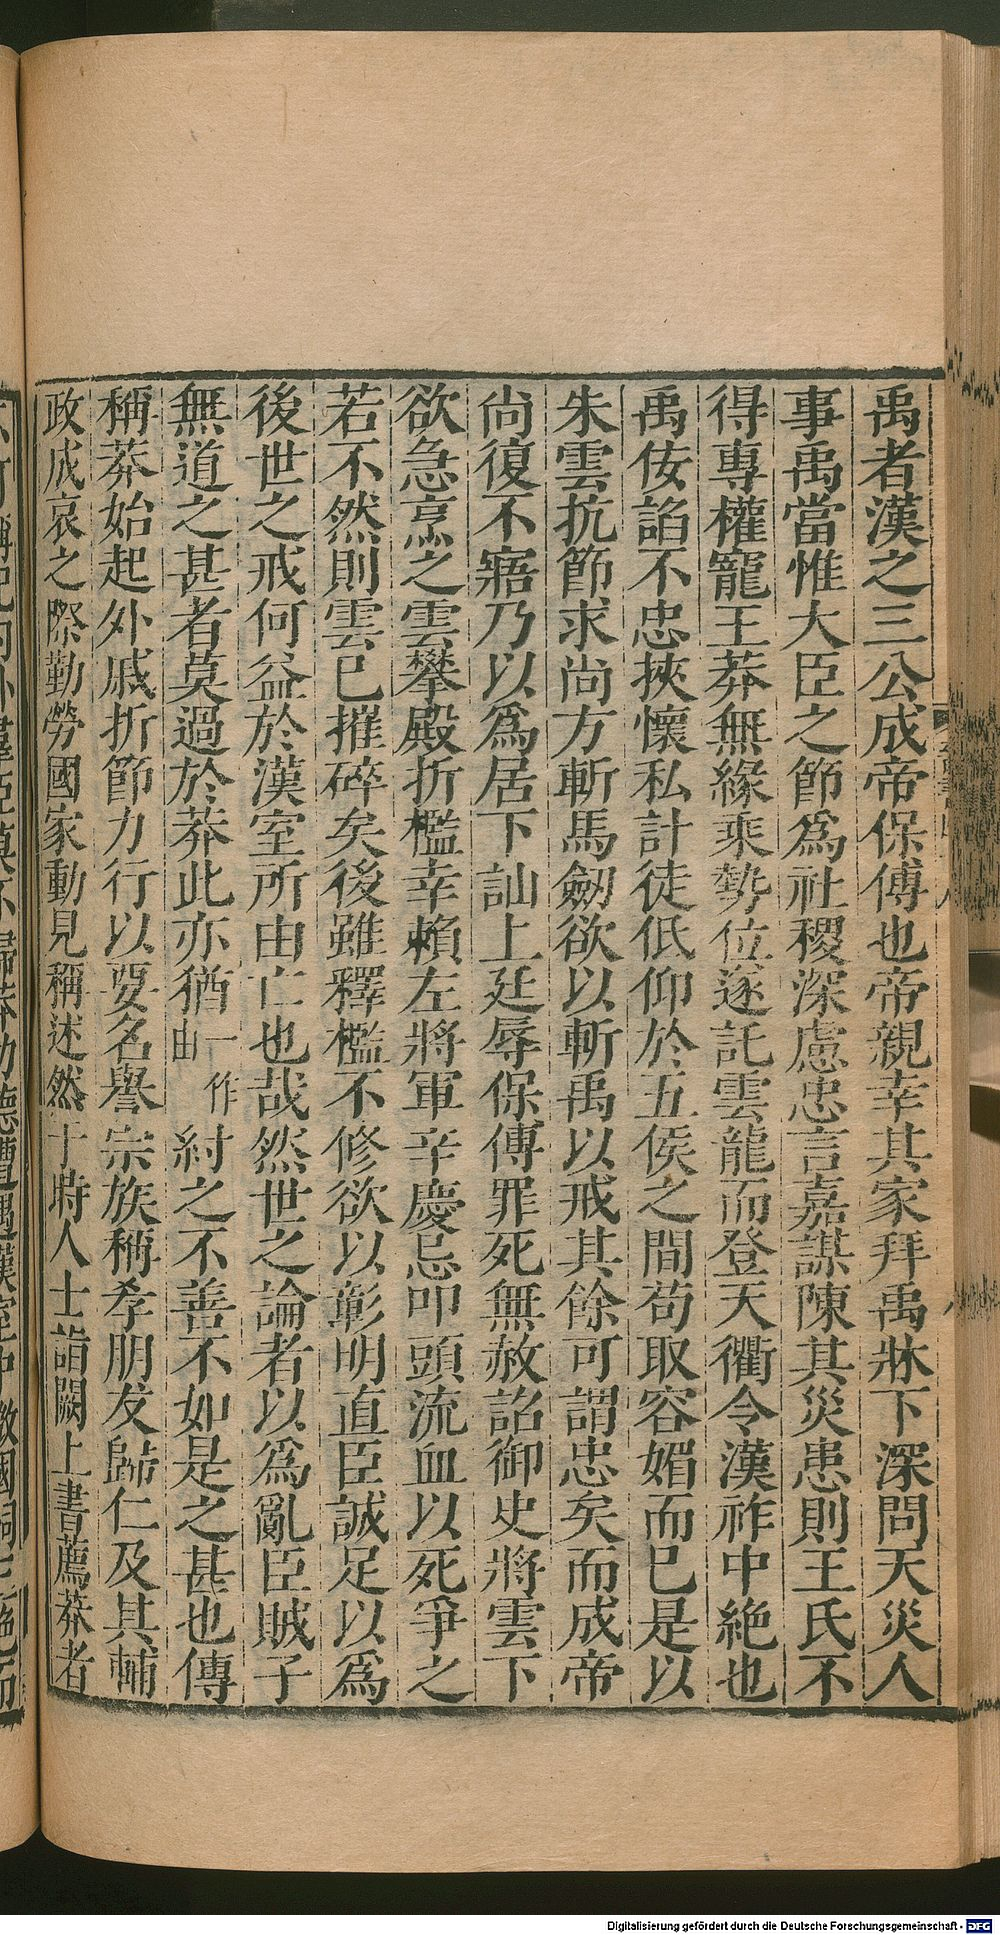 禹者漢之三公成帝保傅也帝親幸其家拜禹牀下深問天災人
事禹當惟大臣之節爲社稷深慮忠言嘉謀陳其災患則王氏不
得專權寵王莽無緣乘勢位遂託雲龍而登天衢令漢祚中絶也
禹佞諂不忠挾懷私計徒低仰於五侯之間苟取容媚而已是以
朱雲抗節求尚方斬馬劒欲以斬禹以戒其餘可謂忠矣而成帝
尚復不寤乃以爲居下訕上廷辱保傅罪死無赦詔御史將雲下
欲急烹之雲攀殿折檻幸賴左將軍辛慶忌叩頭流血以死爭之
若不然則雲已摧碎矣後雖釋檻不修欲以彰明直臣誠足以爲
後世之戒何益於漢室所由亡也哉然世之論者以爲亂臣賊子
無道之甚者莫過於莽此亦猶一作由紂之不善不如是之甚也傳
稱莽始起外戚折節力行以要名譽宗族稱孝朋友歸仁及其輔
政成哀之際勤勞國家動見稱述然于時人士詣闕上書薦莽者
Digitalisierung gefördert durch die Deutsche Forschungsgemeinschaft - DFG